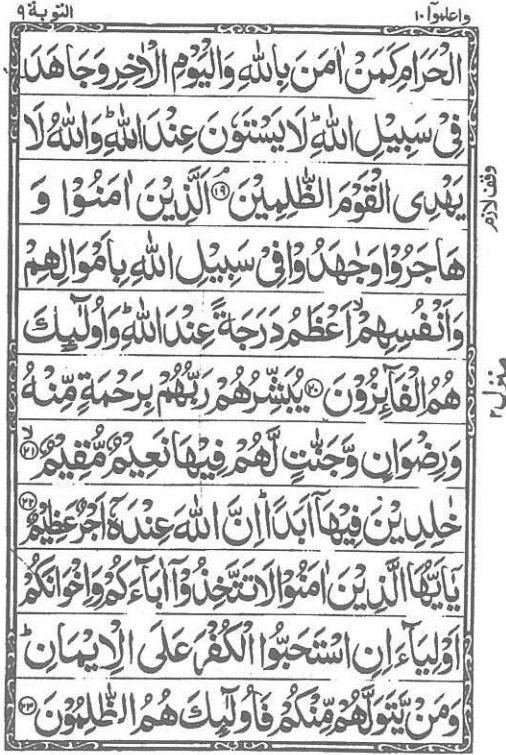 واعلموا ١٠
التوبة ٩
الْحَرَامِ كَمَنْ اٰمَنَ بِاللّٰهِ وَالْيَوْمِ الْاٰخِرِ وَجَاهَدَ
فِيْ سَبِيْلِ اللّٰهِ ؕ لَا يَسْتَوٗنَ عِنْدَ اللّٰهِ ؕ وَاللّٰهُ لَا
يَهْدِى الْقَوْمَ الظّٰلِمِيْنَ ۘ ﴿١٩﴾ اَلَّذِيْنَ اٰمَنُوْا وَ
هَاجَرُوْا وَجٰهَدُوْا فِيْ سَبِيْلِ اللّٰهِ بِاَمْوَالِهِمْ
وَاَنْفُسِهِمْ ۙ اَعْظَمُ دَرَجَةً عِنْدَ اللّٰهِ ؕ وَاُولٰٓئِكَ
هُمُ الْفَآئِزُوْنَ ﴿٢٠﴾ يُبَشِّرُهُمْ رَبُّهُمْ بِرَحْمَةٍ مِّنْهُ
وَرِضْوَانٍ وَّجَنّٰتٍ لَّهُمْ فِيْهَا نَعِيْمٌ مُّقِيْمٌ ۙ ﴿٢١﴾
خٰلِدِيْنَ فِيْهَآ اَبَدًا ؕ اِنَّ اللّٰهَ عِنْدَهٗٓ اَجْرٌ عَظِيْمٌ ﴿٢٢﴾
يٰٓاَيُّهَا الَّذِيْنَ اٰمَنُوْا لَا تَتَّخِذُوْٓا اٰبَآءَكُمْ وَاِخْوَانَكُمْ
اَوْلِيَآءَ اِنِ اسْتَحَبُّوا الْكُفْرَ عَلَى الْاِيْمَانِ ؕ
وَمَنْ يَّتَوَلَّهُمْ مِّنْكُمْ فَاُولٰٓئِكَ هُمُ الظّٰلِمُوْنَ ﴿٢٣﴾
وقف لازم
منزل ٢